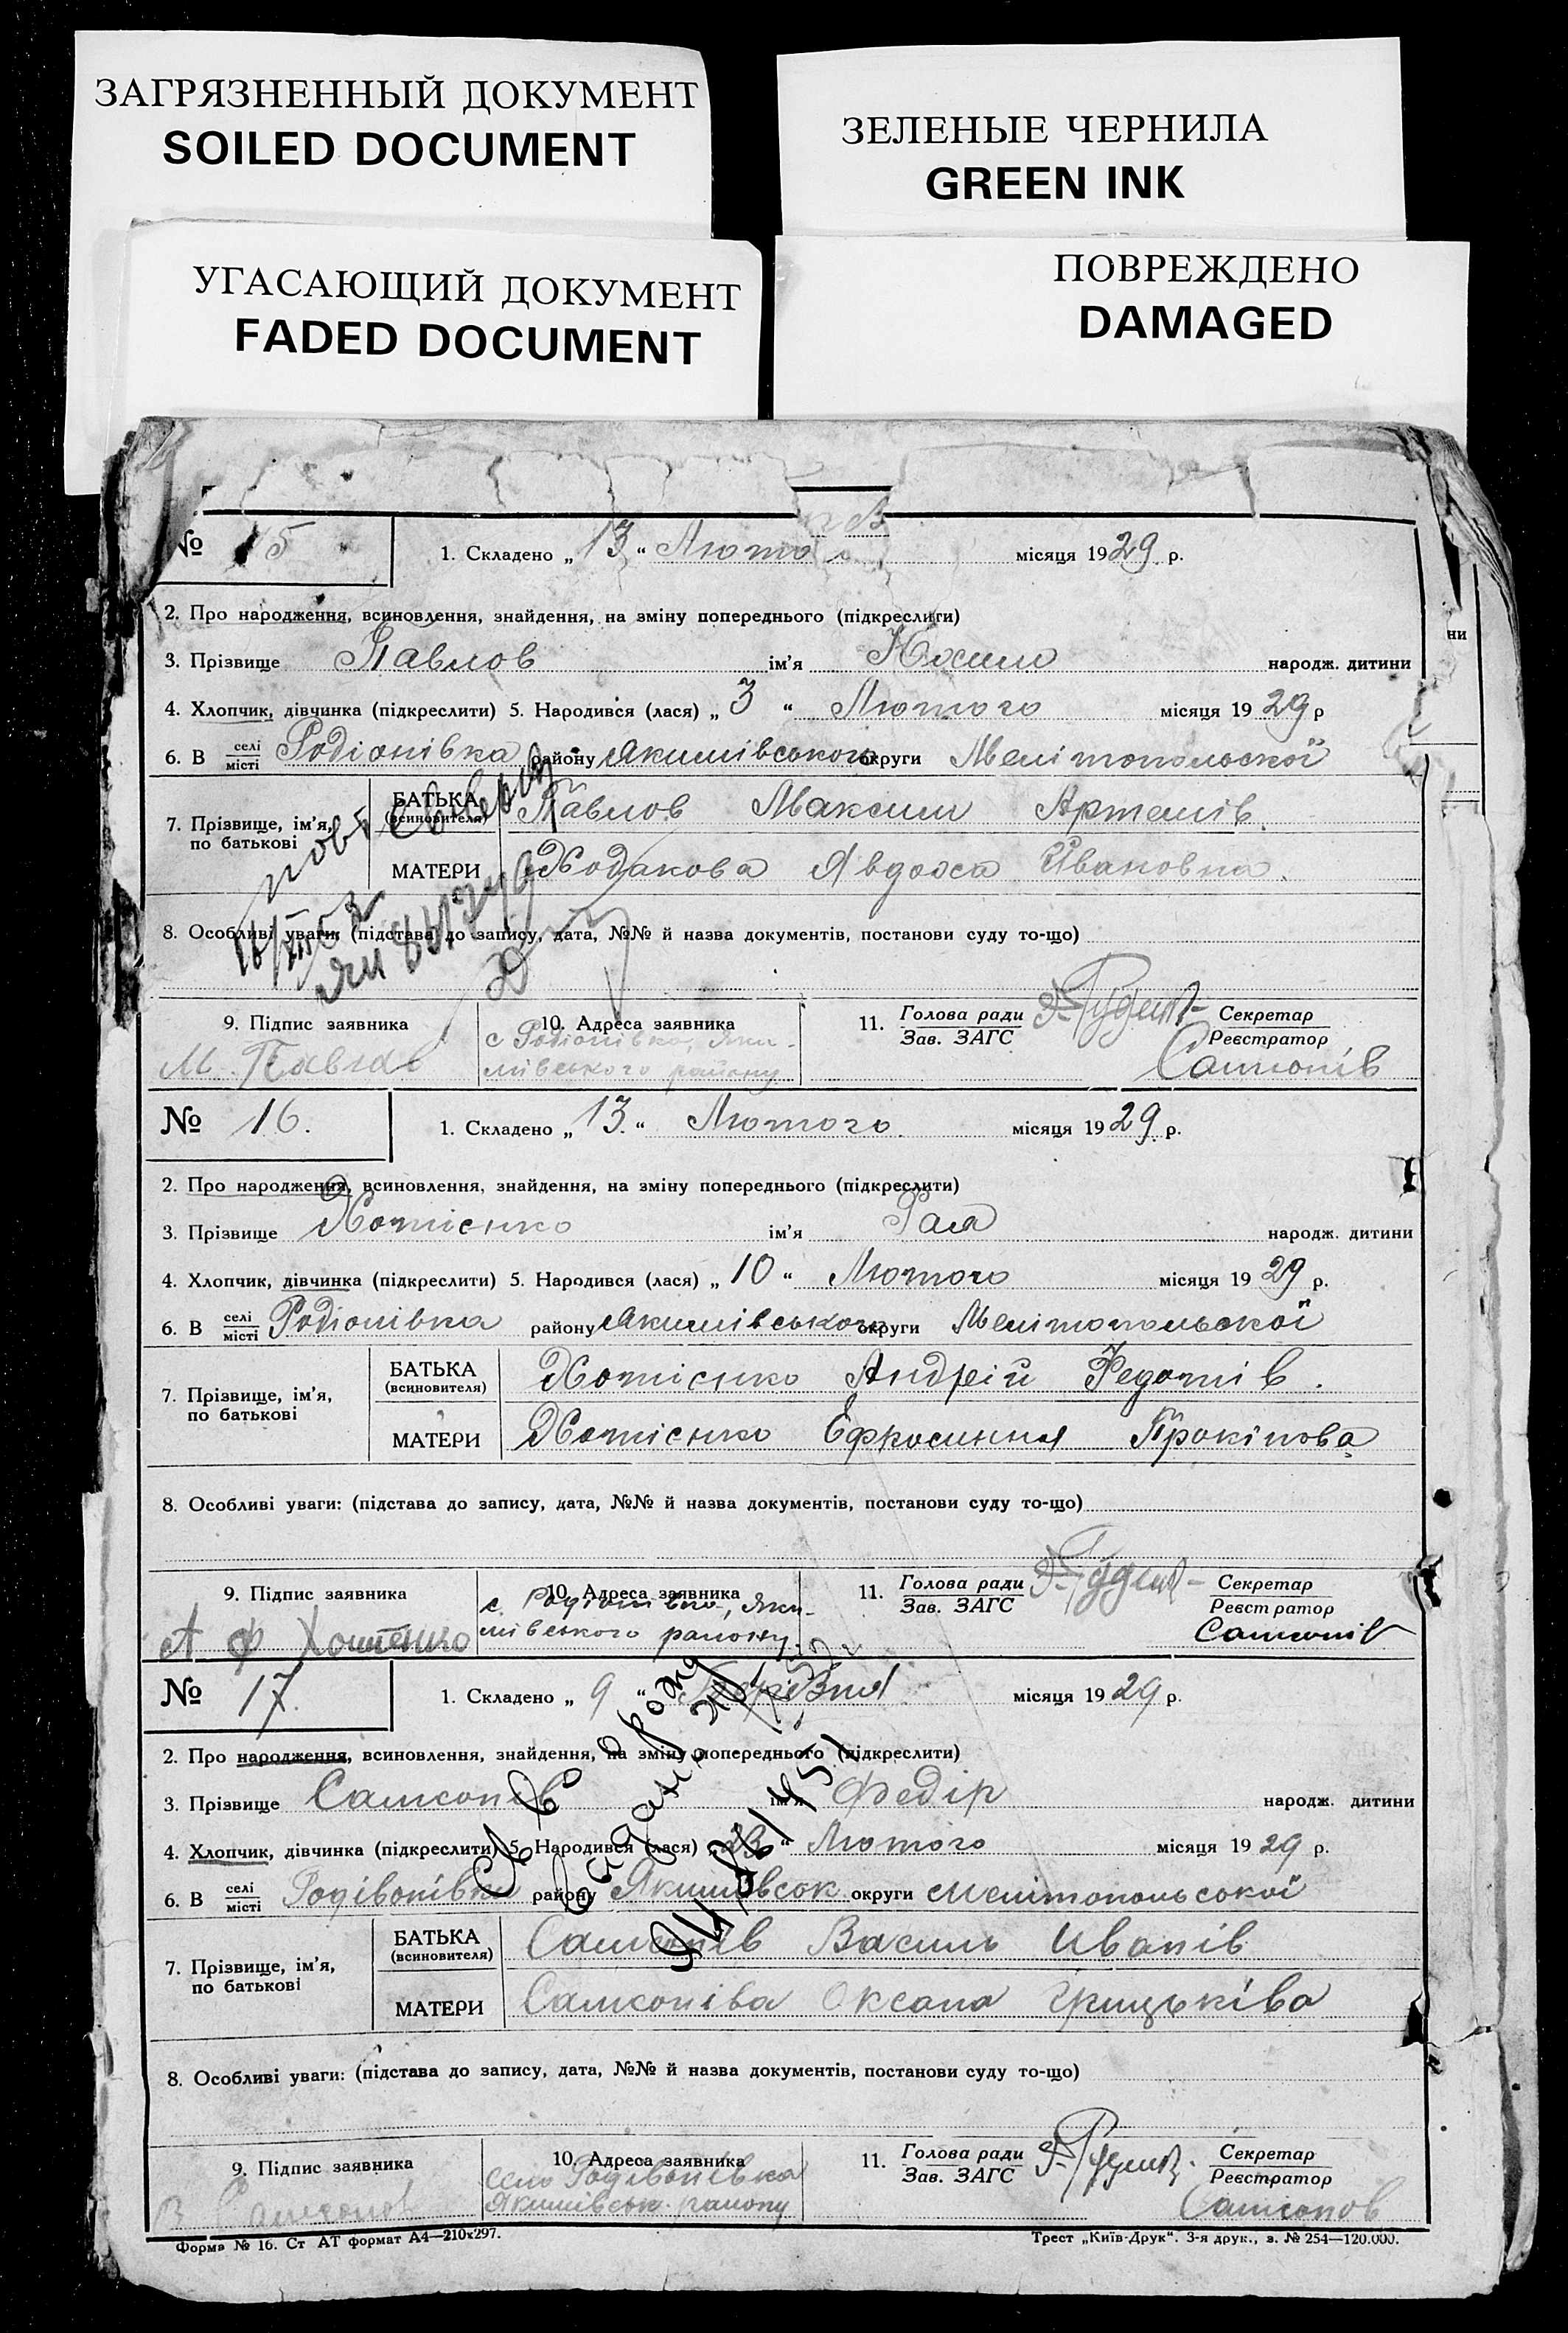 ЗАГРЯЗНЕННЫЙ ДОКУМЕНТ
SOILED DOCUMENT
ЗЕЛЕНЫЕ ЧЕРНИЛА
GREEN INK
УГАСАЮЩИЙ ДОКУМЕНТ
FADED DOCUMENT
ПОВРЕЖДЕНО
DAMAGED
№ 15
1. Складено „ 13 “ Лютого місяця 1929 р.
2. Про народження, всиновлення, знайдення, на зміну попереднього (підкреслити)
3. Прізвище Павлов ім'я народж. дитини
4. Хлопчик, дівчинка (підкреслити) 5. Народився (лася) „ 3 “ Лютого місяця 1929 р
6. В селі місті Родіонівка району Якимівського округи Мелітопольскої
7. Прізвище, ім'я, по батькові
БАТЬКА (всиновителя) Павлов Максим Артемів.
МАТЕРИ Ходакова Явдоха Івановна.
8. Особливі уваги: (підстава до запису, дата, №№ й назва документів, постанови суду то-що)
9. Підпис заявника
М. Павлов
10. Адреса заявника
с Родіонівка, Яки-
мівського району
11. Голова ради
Зав. ЗАГС
Секретар
Реєстратор
Самсонів
№ 16.
1. Складено „ 13. “ Лютого місяця 1929 р.
2. Про народження, всиновлення, знайдення, на зміну попереднього (підкреслити)
3. Прізвище Хотієнко ім'я Рая народж. дитини
4. Хлопчик, дівчинка (підкреслити) 5. Народився (лася) „ 10 “ Лютого місяця 1929 р.
6. В селі місті Родіонівка району Якимівського округи Мелітопольскої
7. Прізвище, ім'я, по батькові
БАТЬКА (всиновителя) Хотієнко Андрій Федотів.
МАТЕРИ Хотієнко Ефросиння Прокіпова
8. Особливі уваги: (підстава до запису, дата, №№ й назва документів, постанови суду то-що)
9. Підпис заявника
А Ф Хотіенко
10. Адреса заявника
с. Родіонівка, Яки-
мівського району.
11. Голова ради
Зав. ЗАГС
Секретар
Реєстратор
Самсонів
№ 17.
1. Складено „ 9 “ Березня місяця 1929 р.
2. Про народження, всиновлення, знайдення, на зміну попереднього (підкреслити)
3. Прізвище Самсонів ім'я Федір народж. дитини
4. Хлопчик, дівчинка (підкреслити) 5. Народився (лася) „ 23 “ Лютого місяця 1929 р.
6. В селі місті Родівонівка району Якимівськ округи Мелітопольської
7. Прізвище, ім'я, по батькові
БАТЬКА (всиновителя) Самсонів Василь Иванів
МАТЕРИ Самсоніва Оксана Грицьківа
8. Особливі уваги: (підстава до запису, дата, №№ й назва документів, постанови суду то-що)
9. Підпис заявника
В Самсонов
10. Адреса заявника
село Родівонівка
Якимівськ. району
11. Голова ради
Зав. ЗАГС
Секретар
Реєстратор
Самсонов
Форма № 16. Ст АТ формат А4—210х297.
Трест „Київ-Друк“. 3-я друк., з. № 254—120.000.